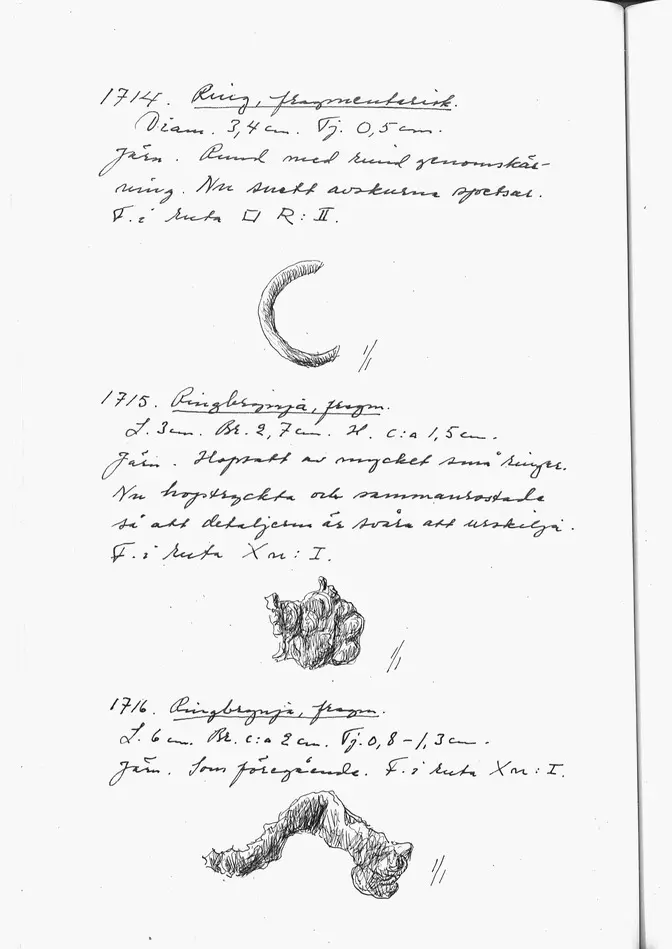 1714. Ring, fragmentarisk.
Diam. 3,4 cm. Tj. 0,5 cm.
Järn. Rund med rund genomskär-
ning. Nu snett avskurna spetsar.
F. i ruta □ R: II.
1/1
1715. Ringbrynja, fragm.
L. 3 cm. Br. 2,7 cm. H. c:a 1,5 cm.
Järn. Hopsatt av mycket små ringar.
Nu hoptryckta och sammanrostade
så att detaljerna är svåra att urskilja.
F. i ruta X n: I.
1/1
1716. Ringbrynja, fragm.
L. 6 cm. Br. c:a 2 cm. Tj. 0,8-1,3 cm.
Järn. Som föregående. F. i ruta X n: I.
1/1